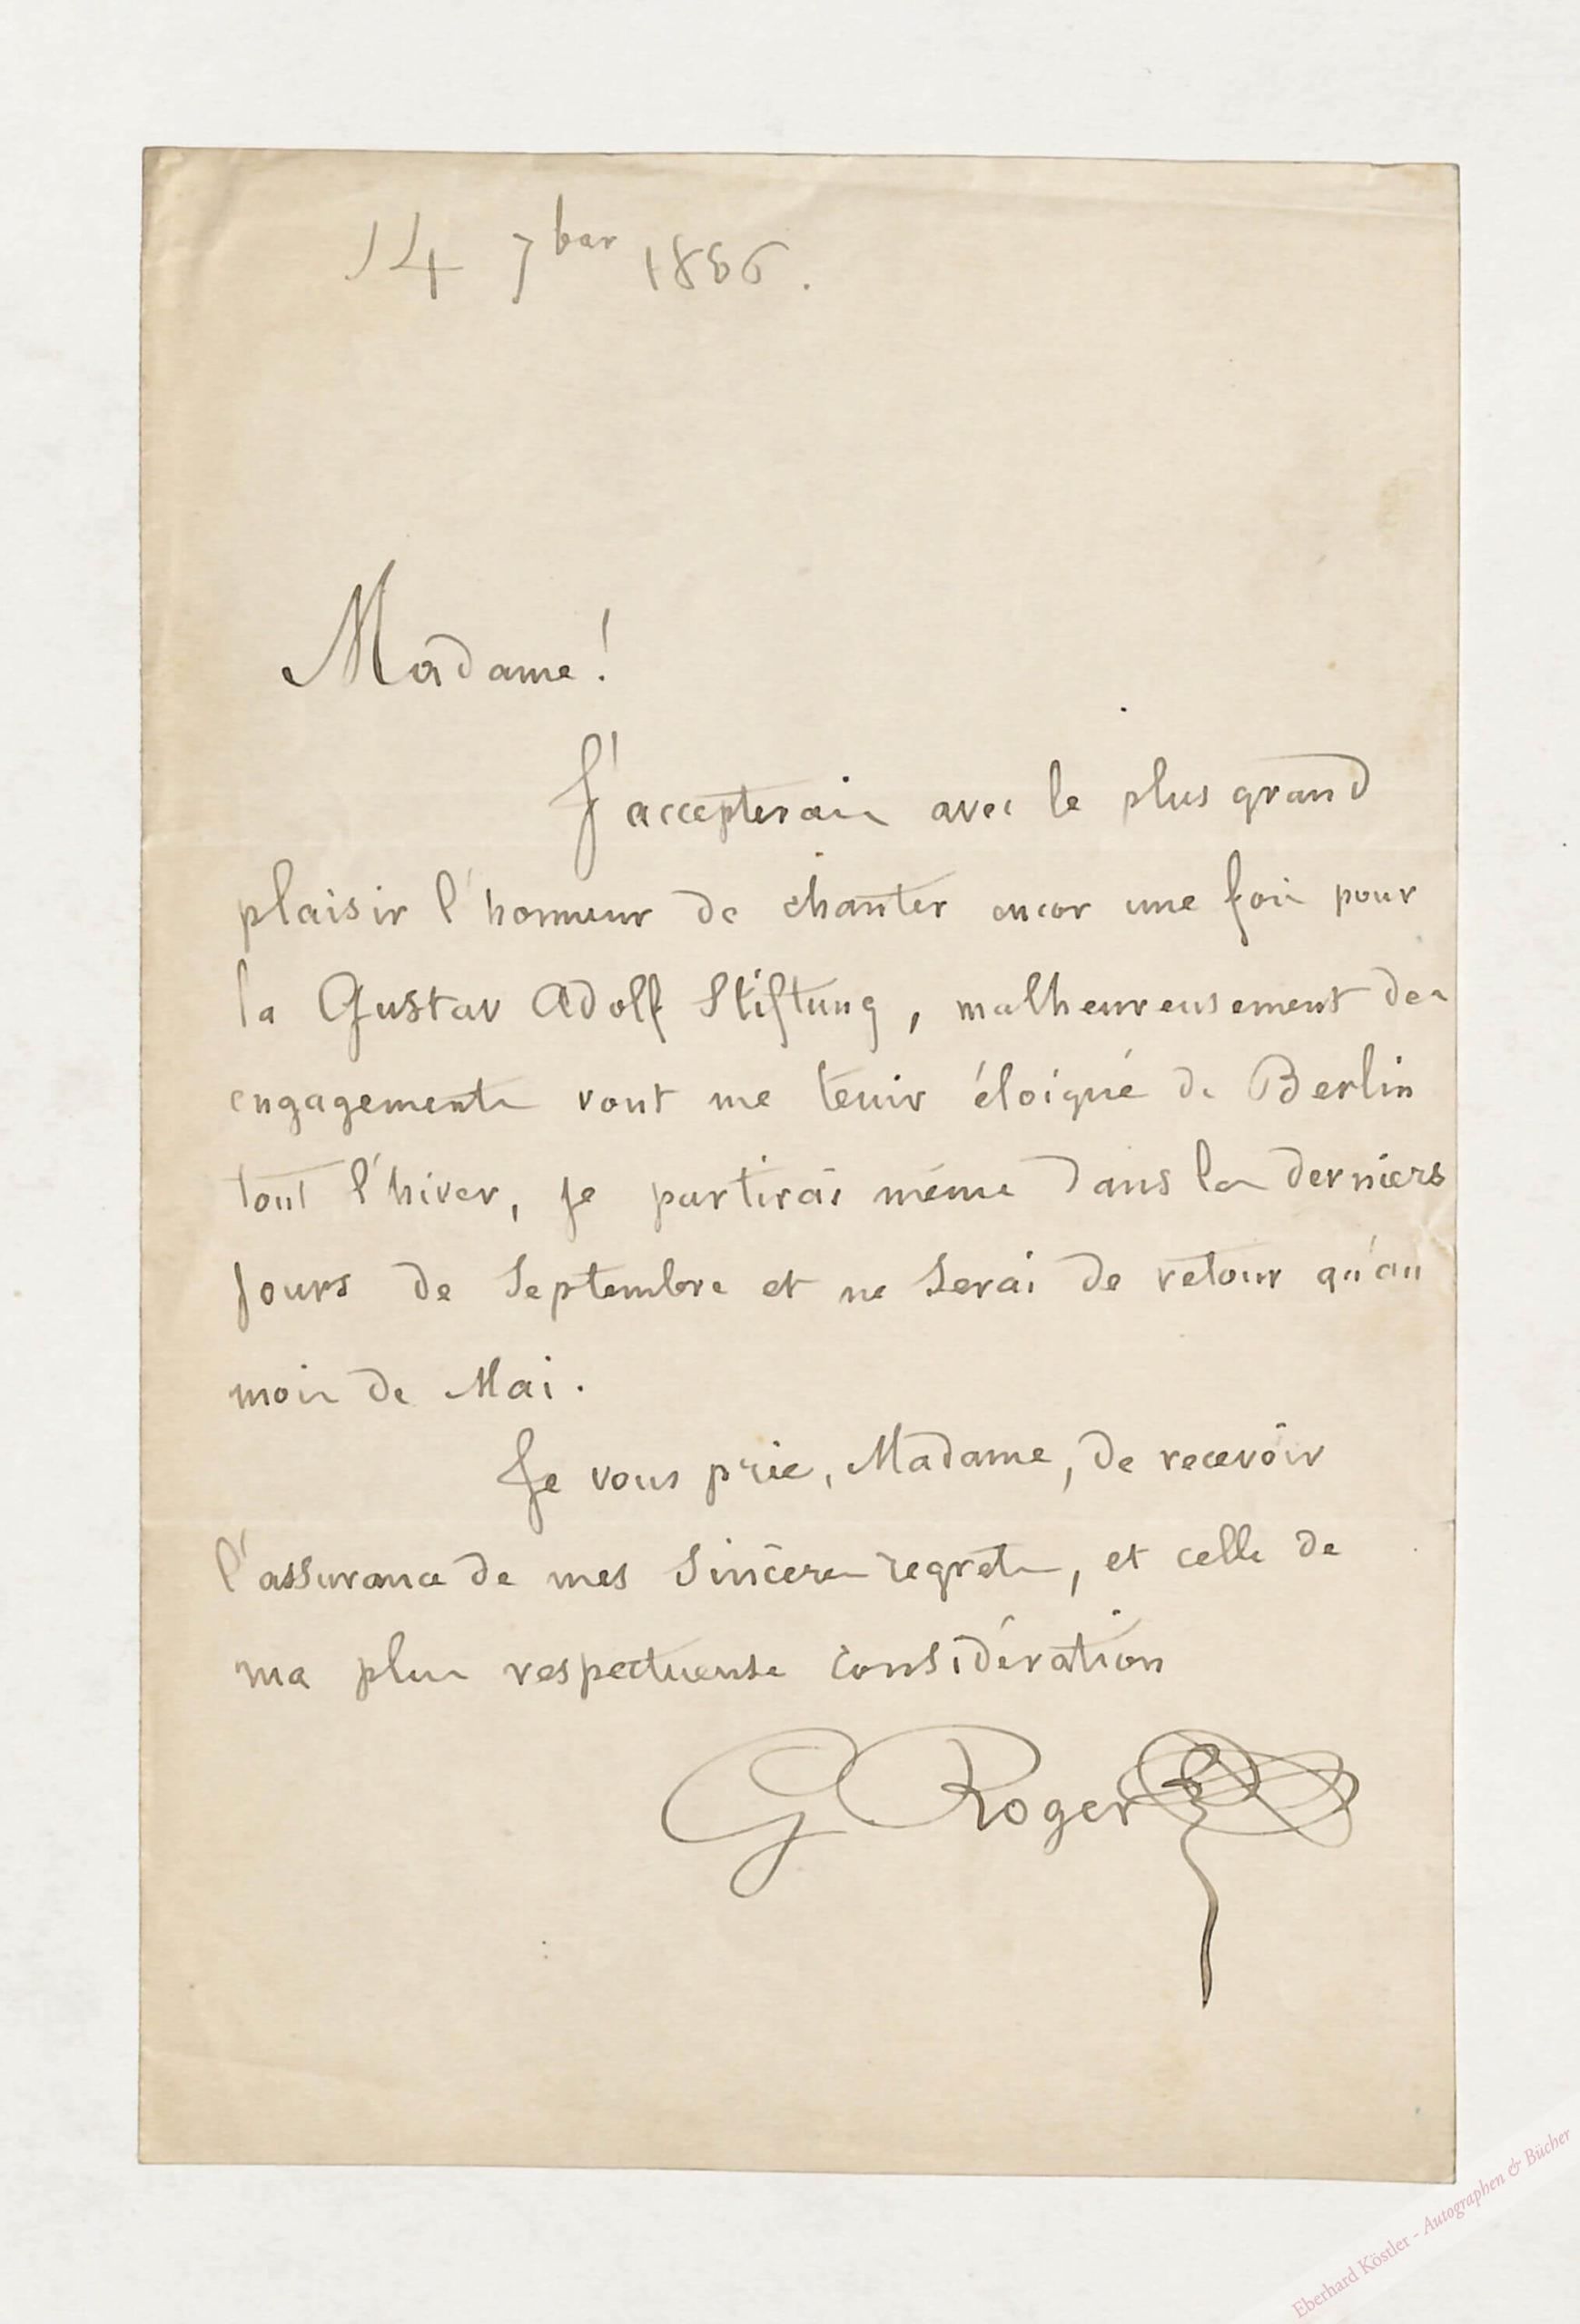 14 7ber 1856.
Madame!
J'accepterais avec le plus grand
plaisir l'honneur de chanter encor une fois pour
la Gustav Adolf Stiftung, malheureusement des
engagements vont me tenir éloigné de Berlin
tout l'hiver, je partirai même dans les derniers
jours de Septembre et ne serai de retour qu'au
mois de Mai.
Je vous prie, Madame, de recevoir
l'assurance de mes sincères regrets, et celle de
ma plus respectueuse considération
G Roger
Eberhard Köstler - Autographen & Bücher